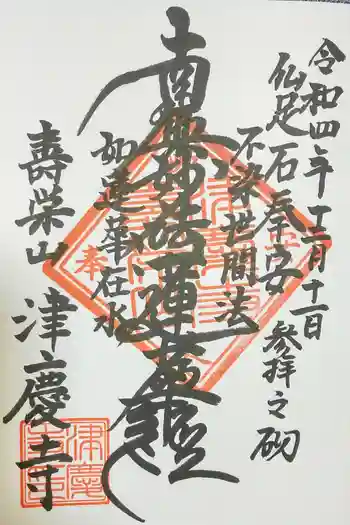 令和四年十二月十一日
仏足石奉安 参拝之砌
不染世間法
南無妙法蓮華経
如蓮華在水
壽栄山
津慶寺
奉